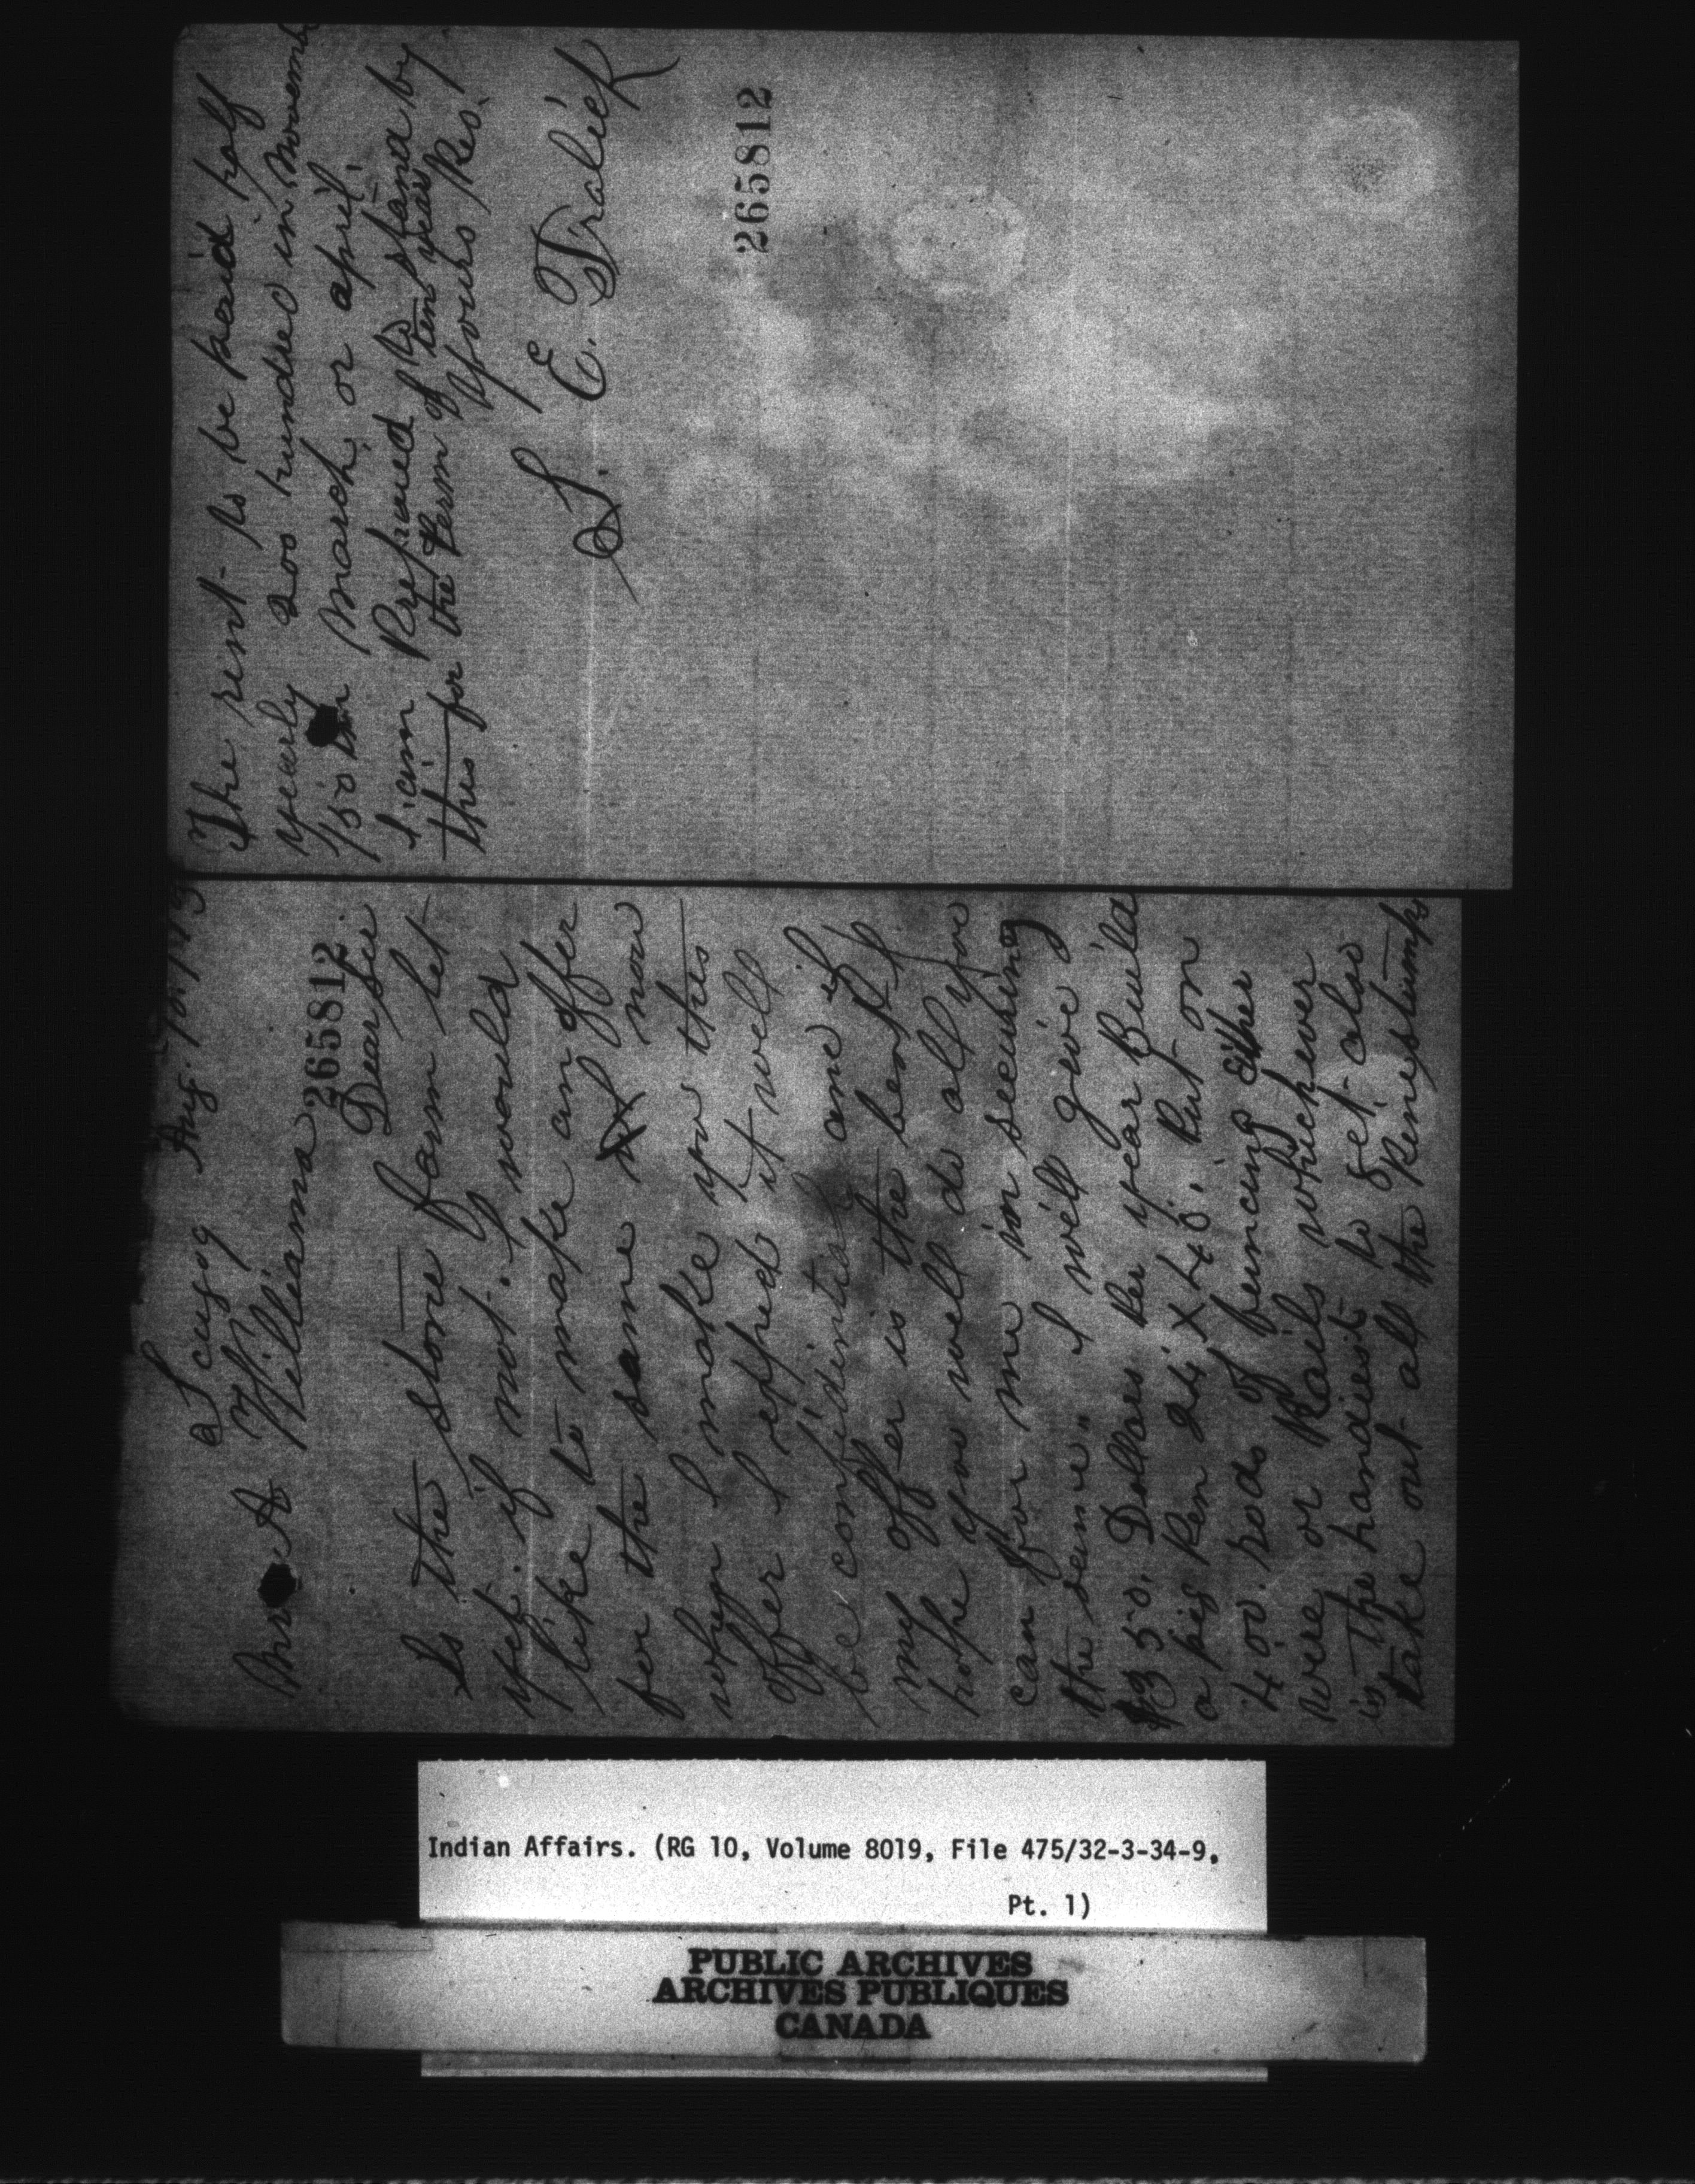 Scugog Aug. 10, 1903
Mr A Williams
265812
Dear Sir
Is the stone farm let
yet. if not. I would
like to make an offer
for the same & now
when I make you this
offer I expect it will
be confidential and if
my offer is the best I
hope you will do all you
can for me in securing
the same. I will give
$350. Dollars per year Build
a pig Pen 20 X 40. Put on
400. rods of fencing Either
wire or Rails whichever
is the handiest to get. also
take out all the Pine stumps
The rent to be paid half
yearly 200 hundred in November
150 in March or april.
I am Prepared to stand by
this for the term of ten years
Yours Res.
S. E. Tralick
265812
Indian Affairs. (RG 10, Volume 8019, File 475/32-3-34-9,
Pt. 1)
PUBLIC ARCHIVES
ARCHIVES PUBLIQUES
CANADA